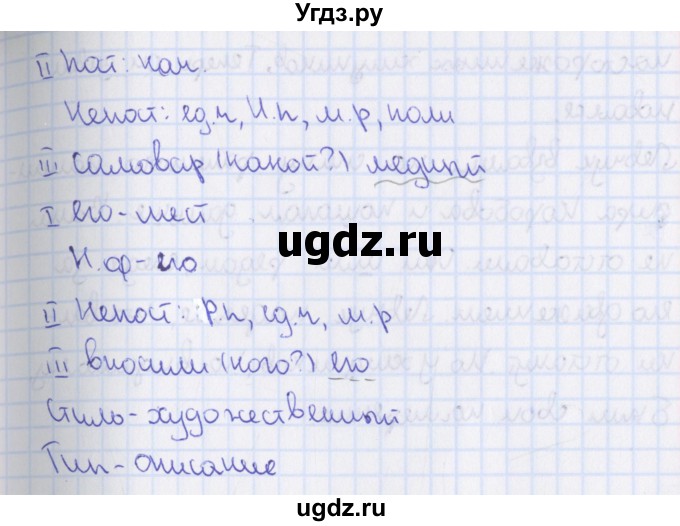 Угдз.ру
II Пост: кач.
Непост: ед.ч, И.п, м.р, полн
III самовар (какой?) медный
I его - мест
Н.ф - его
ugdz.ru
II Непост: Р.п, ед.ч, м.р
III вносили (кого?) его
Стиль - художественный
Тип - описание
ugdz.ru